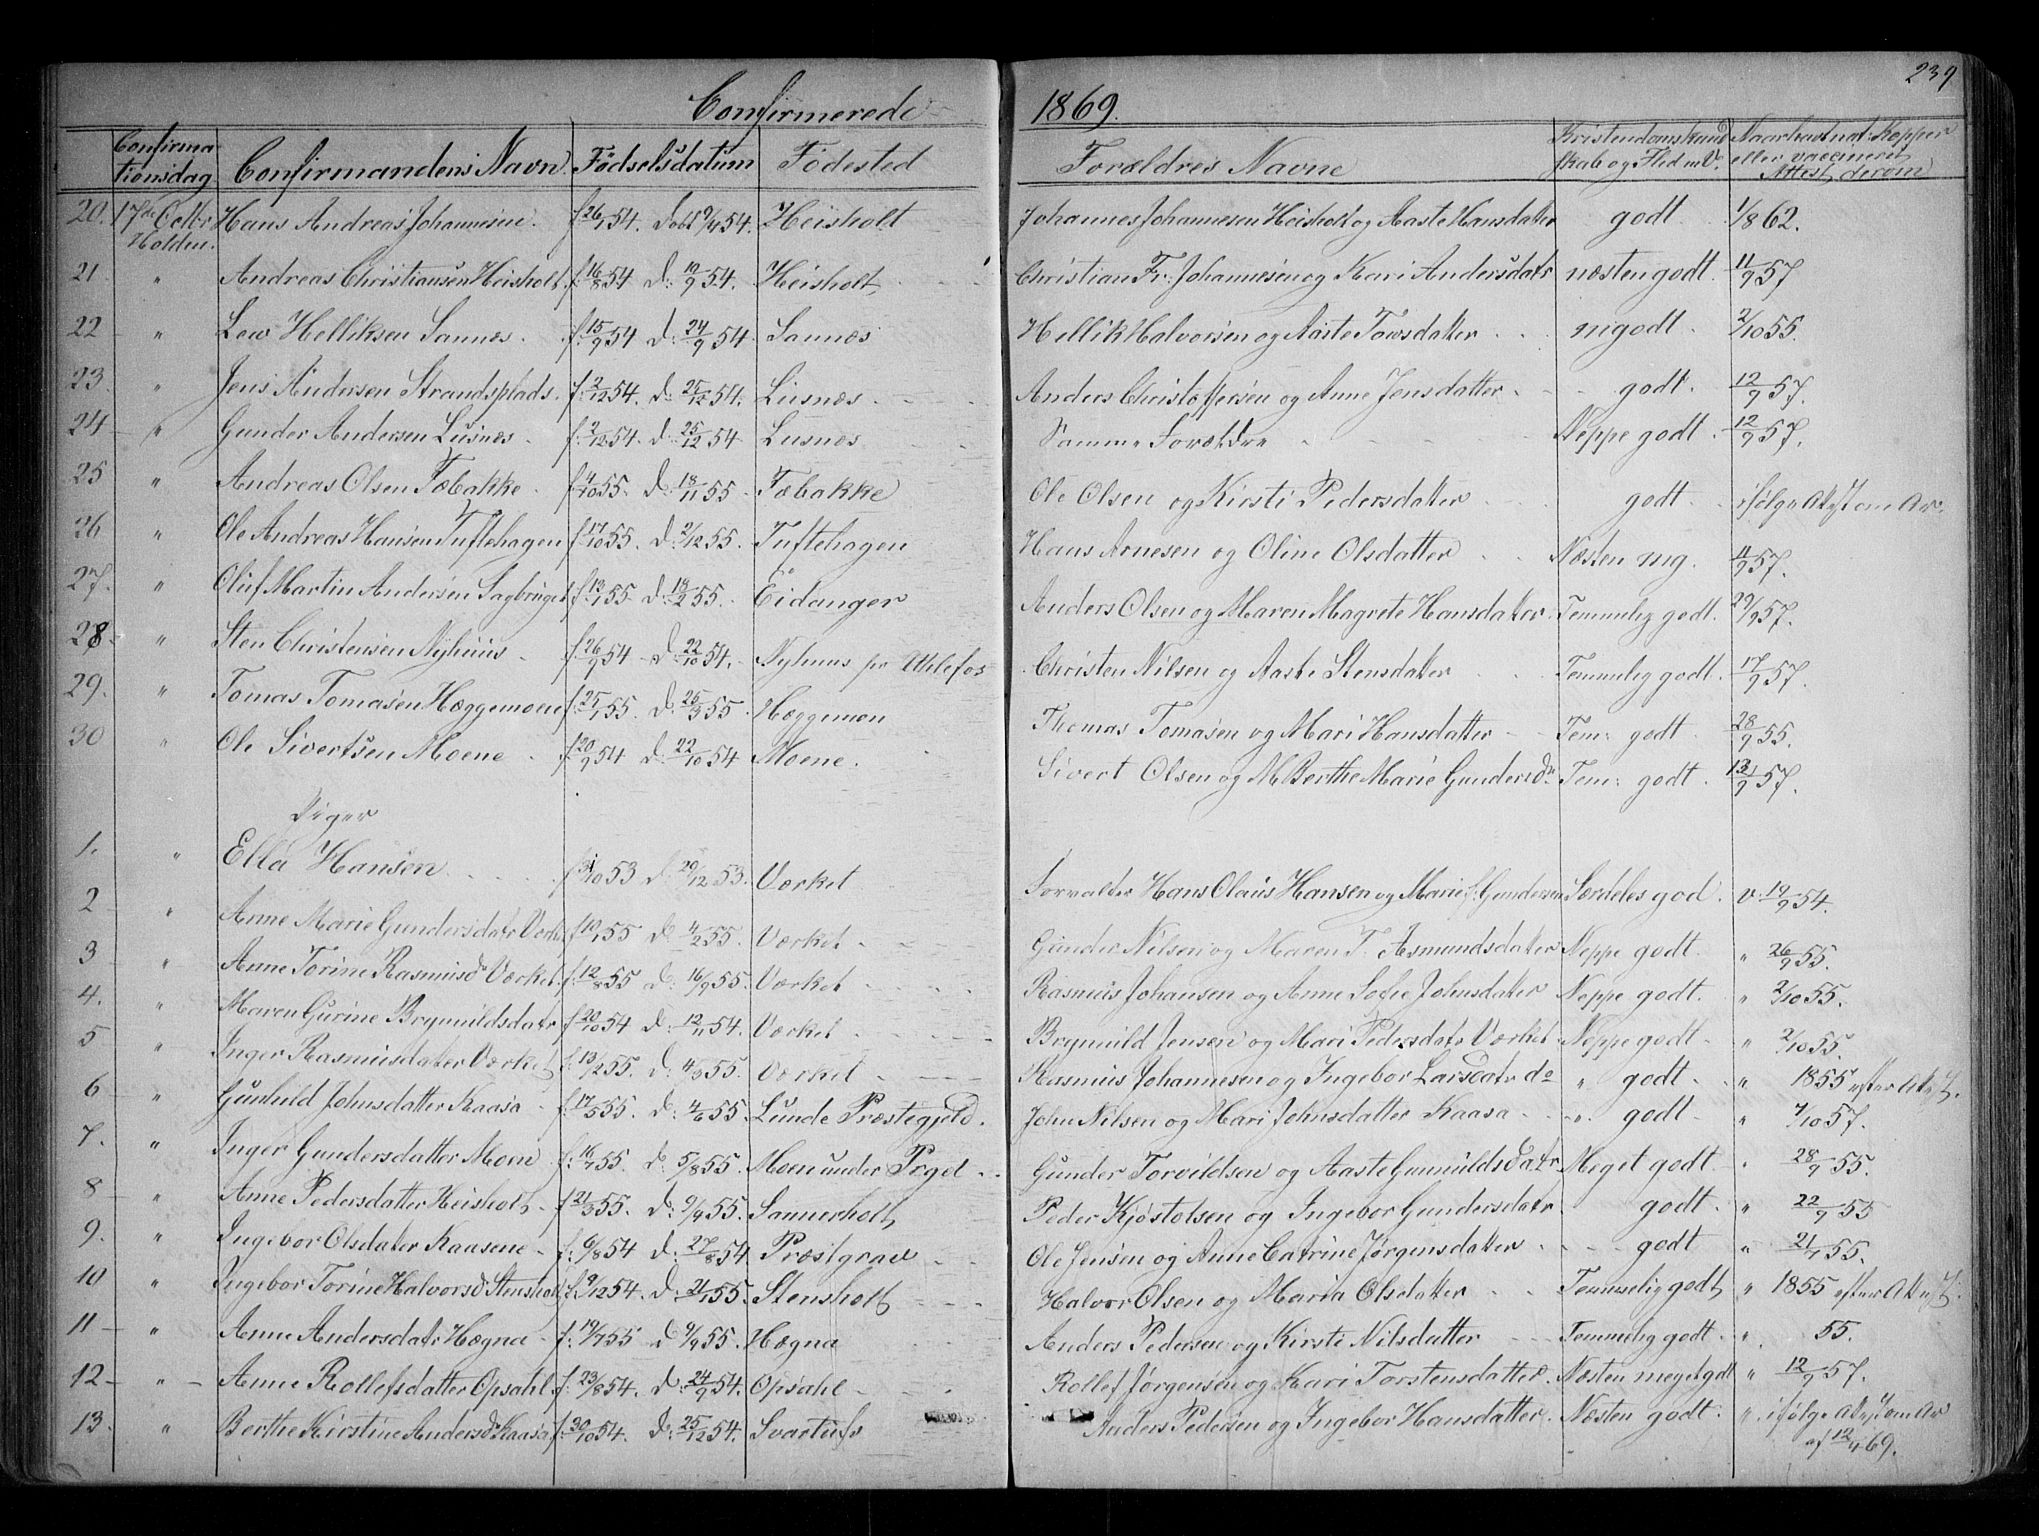 239
Confirmerede 1869.
Confirmationsdag Confirmandens Navn Fødselsdatum Fødested Forældres Navne Kristendomskundskab og Flid m.V. Naar havt nat: Kopper eller vaccineret Attest derom
20. 17de Octbr Holden. Hans Andreas Johannesen. f. 26/1 54. Døbt 9/4 54. Heisholt Johannes Johannesen Heisholt og Aaste Hansdatter godt 1/8 62.
21 " Andreas Christiansen Heisholt f. 16/8 54 d: 10/9 54. Heisholt Christian Fr: Johannesen og Kari Andersdatr næsten godt. 11/9 57
22 " Lew Helliksen Sannes. f. 15/9 54 d: 24/9 54. Sannes Hellik Halvorsen og Aaste Towsdatter mgodt. 2/10 55.
23. " Jens Andersen Strandsplads. f. 2/12 54. d: 25/12 54. Lusnæs. Anders Christoffersen og Anne Jensdatter godt. 12/9 57.
24 " Gunder Andersen Lusnæs. f. 2/12 54. d: 25/12 54 Lusnæs Samme Forældre Neppe godt. 12/9 57.
25 " Andreas Olsen Tæbakke. f. 4/10 55. d: 18/11 55. Tæbakke Ole Olsen og Kirsti Pedersdatter godt ifølge Attest om Ar.
26 " Ole Andreas Hansen Tuftehagen f. 17/10 55. d. 2/12 55. Tuftehagen Hans Arnesen og Oline Olsdatter Næsten mg. 11/9 57.
27. " Oluf Martin Andersen Sagbruget f. 13/1 55 d. 18/2 55. Eidanger Anders Olsen og Maren Magrete Hansdatter. Temmelig godt. 29/9 57.
28 " Sten Christensen Nyhuus f. 26/9 54 d: 22/10 54. Nyhuus pr Uhlefos Christen Nilsen og Aaste Stensdatter Temmelig godt. 17/9 57.
29. " Tomas Tomasen Hæggemoen f. 21/1 55. d: 25/3 55. Hæggemoen Thomas Tomasen og Mari Hansdatter Tem: godt 28/9 55.
30 " Ole Sivertsen Moene f. 20/9 54 d: 22/10 54 Moene. Sivert Olsen og M Berthe Marie Gundersdr. Tem: godt. 13/9 57.
Piger
1. " Ella Hansen f. 3/10 53 d: 20/12 53. Værket Forvalter Hans Olaus Hansen og Marie f. Gundersen Særdeles god. v. 19/9 54.
2 " Anne Marie Gundersdatr Værket f. 10/1 55 d. 4/2 55. Værket Gunder Nilsen og Maren T. Asmundsdatter Neppe godt. " 26/9 55.
3 " Anne Torine Rasmusd. Værket. f. 12/8 55 d. 16/9 55. Værket Rasmus Johansen og Anne Sofie Johnsdatter Neppe godt. " 2/10 55.
4. " Maren Gurine Brynuldsdatr f. 20/10 54 d: 12/11 54. Værket Brynuld Jensen og Mari Pedersdatr Værket Neppe godt " 2/10 55.
5 " Inger Rasmusdatter Værket f. 13/2 55. d. 4/3 55. Værket Rasmus Johannesen og Ingebor Larsdatr do " godt " 1855 efter Attest.
6 " Gunhild Johnsdatter Kaasa. f. 17/5 55. d. 4/6 55. Lunde Præstegjeld. John Nilsen og Mari Johnsdatter Kaasa ". godt " 4/10 57.
7. " Inger Gundersdatter Moen f. 16/7 55. d. 5/8 55. Moen under Prgd Gunder Torvildsen og Aaste Gunnuldsdatr. Meget godt. " 28/9 55.
8 " Anne Pedersdatter Heisholt. f. 21/3 55. d: 9/4 55. Sannerholt Peder Kjøstolsen og Ingebor Gundersdatr. godt. " 22/9 55
9. " Ingebor Olsdatter Kaasene. f: 6/8 54 d: 27/8 54. Præstgrav Ole Jensen og Anne Catrine Jørgensdatter. godt " 21/7 55.
10 " Ingebor Torine Halvorsd. Stensholt f. 9/12 54. d: 21/1 55. Stensholt Halvor Olsen og Maria Olsdatter Temmelig godt " 1855 efter Attest.
11 " Anne Andersdatr Hægna. f: 19/7 55 d 9/9 55. Hægna Anders Pedersen og Kirsti Nilsdatter Temmelig godt. ". 55.
12 " Anne Rollefsdatter Opsahl. f: 23/8 54. d: 24/9 54. Opsahl Rollef Jørgensen og Kari Torstensdatter. Næsten meget gdt " 12/9 57.
13. " Berthe Kirstine Andersd. Kaasa f. 30/10 54. d. 25/12 54. Svartufs Anders Pedersen og Ingebor Hansdatter. Næsten godt. " ifølge Attest om Ar af 12/4 69.